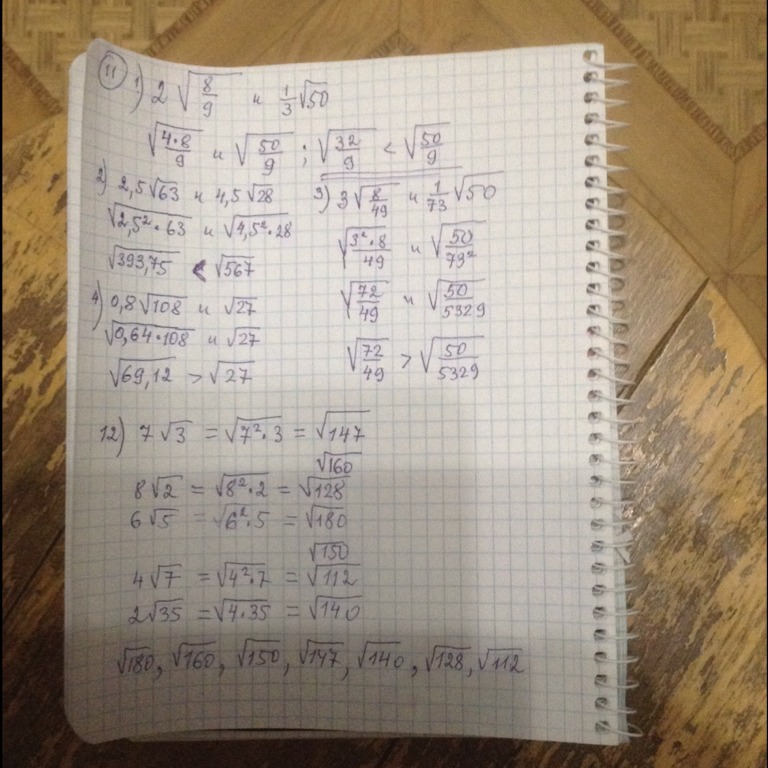 11 1) 2√(8/9) и 1/3√50
√(4·8/9) и √(50/9) ; √(32/9) < √(50/9)
2) 2,5√63 и 4,5√28
√(2,5²·63) и √(4,5²·28)
√393,75 < √567
3) 3√(8/49) и 1/73√50
√(3²·8/49) и √(50/73²)
√(72/49) и √(50/5329)
√(72/49) > √(50/5329)
4) 0,8√108 и √27
√(0,64·108) и √27
√69,12 > √27
12) 7√3 = √(7²·3) = √147
√160
8√2 = √(8²·2) = √128
6√5 = √(6²·5) = √180
√150
4√7 = √(4²·7) = √112
2√35 = √(4·35) = √140
√180, √160, √150, √147, √140, √128, √112